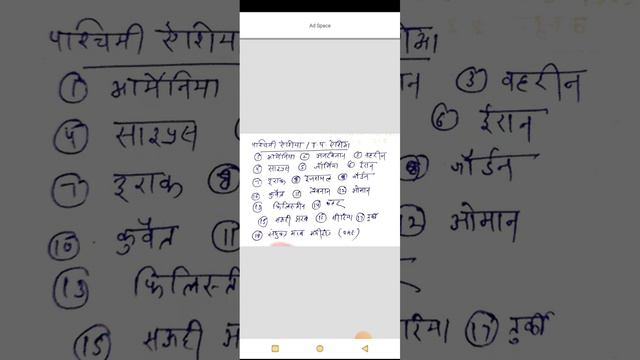 Ad Space
पाश्चिमी ऐशिया
① आर्मेनिया ③ वहरीन
④ साइप्रस ⑥ ईरान
⑦ इराक ⑧ जॉर्डन
⑩ कुवैत ⑪ ⑫ ओमान
⑬ फिलिस्ती
⑮ सऊदी ⑰ तुर्की
पाश्चिमी ऐशिया / द. प. ऐशिया
① आर्मेनिया ② अजरबैजान ③ वहरीन
④ साइप्रस ⑤ जॉर्जिया ⑥ ईरान
⑦ इराक ⑧ इजरायल ⑨ जॉर्डन
⑩ कुवैत ⑪ लेबनान ⑫ ओमान
⑬ फिलिस्तीन ⑭ कतर
⑮ सऊदी अरब ⑯ सीरिया ⑰ तुर्की
⑱ संयुक्त अरब अमीरात (UAE)